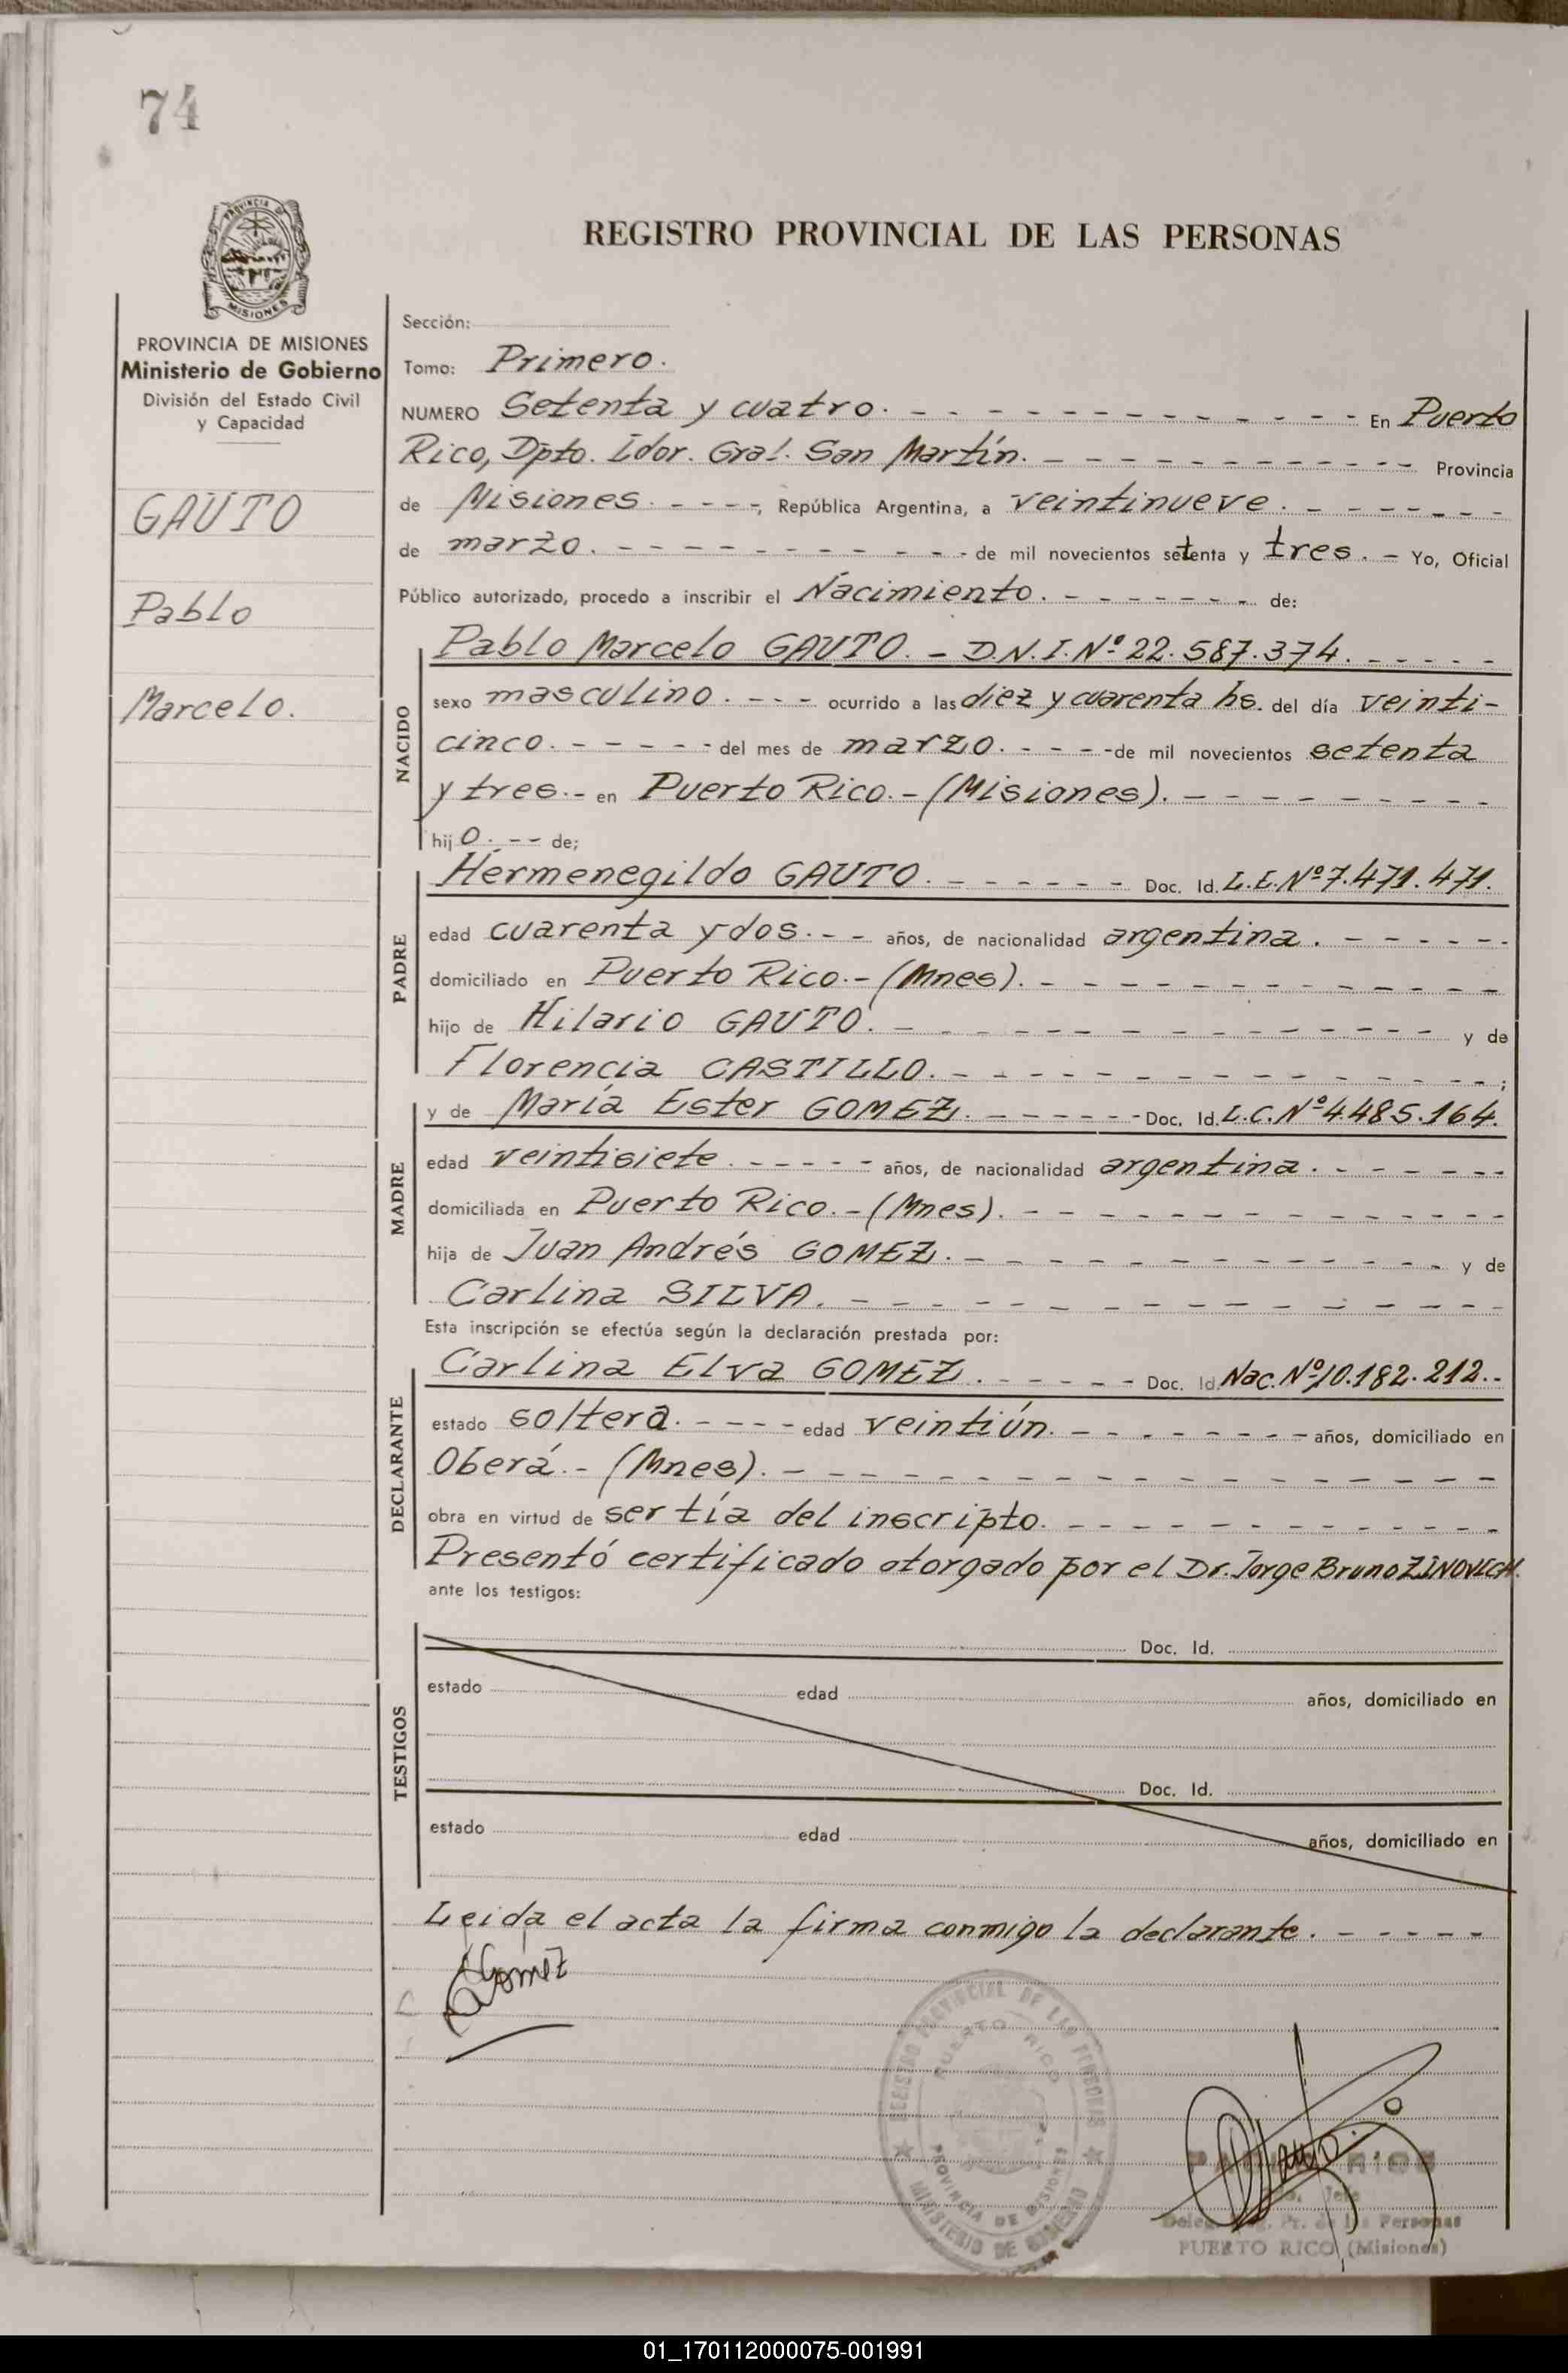 74
PROVINCIA DE
MISIONES
REGISTRO PROVINCIAL DE LAS PERSONAS
PROVINCIA DE MISIONES
Ministerio de Gobierno
División del Estado Civil
y Capacidad
GAUTO
Pablo
Marcelo.
Sección:
Tomo: Primero.
NUMERO Setenta y cuatro. - - - - - - - - - - - - En Puerto
Rico, Dpto. Ldor. Gral. San Martín. - - - - - - - - - - - - Provincia
de Misiones. - - - -, República Argentina, a veintinueve. - - - - - - -
de marzo. - - - - - - - - - - - de mil novecientos setenta y tres. - Yo, Oficial
Público autorizado, procedo a inscribir el Nacimiento. - - - - - - - - de:
NACIDO
Pablo Marcelo GAUTO. - D.N.I. Nº 22.587.374. - - - - -
sexo masculino. - - - ocurrido a las diez y cuarenta hs. del día veinti-
cinco. - - - - - del mes de marzo. - - - - de mil novecientos setenta
y tres. - en Puerto Rico. - (Misiones). - - - - - - - - -
hijo. - - de;
PADRE
Hermenegildo GAUTO. - - - - - - Doc. Id. L.E. Nº 7.471.471.
edad cuarenta y dos. - - años, de nacionalidad argentina. - - - - - -
domiciliado en Puerto Rico. - (Mnes). - - - - - - - - - - - - -
hijo de Hilario GAUTO. - - - - - - - - - - - - - - y de
Florencia CASTILLO. - - - - - - - - - - - - - - ;
MADRE
y de María Ester GOMEZ. - - - - - - Doc. Id. L.C. Nº 4.485.164.
edad veintisiete. - - - - - años, de nacionalidad argentina. - - - - - -
domiciliada en Puerto Rico. - (Mnes). - - - - - - - - - - - - -
hija de Juan Andrés GOMEZ. - - - - - - - - - - - - y de
Carlina SILVA. - - - - - - - - - - - - - - -
Esta inscripción se efectúa según la declaración prestada por:
DECLARANTE
Carlina Elva GOMEZ. - - - - - - Doc. Id. Nac. Nº 10.182.212. -
estado soltera. - - - - edad veintiún. - - - - - - - - - años, domiciliado en
Oberá. - (Mnes). - - - - - - - - - - - - - - - - - -
obra en virtud de ser tía del inscripto. - - - - - - - - - - - -
Presentó certificado otorgado por el Dr. Jorge Bruno ZINOVICH.
ante los testigos:
TESTIGOS
Doc. Id.
estado edad años, domiciliado en
Doc. Id.
estado edad años, domiciliado en
Leida el acta la firma conmigo la declarante. - - - - -
Gomez
REGISTRO PROVINCIAL DE LAS PERSONAS
PUERTO RICO
PROVINCIA DE MISIONES
MINISTERIO DE GOBIERNO
Jefe
Pr. de las Personas
PUERTO RICO (Misiones)
01_170112000075-001991